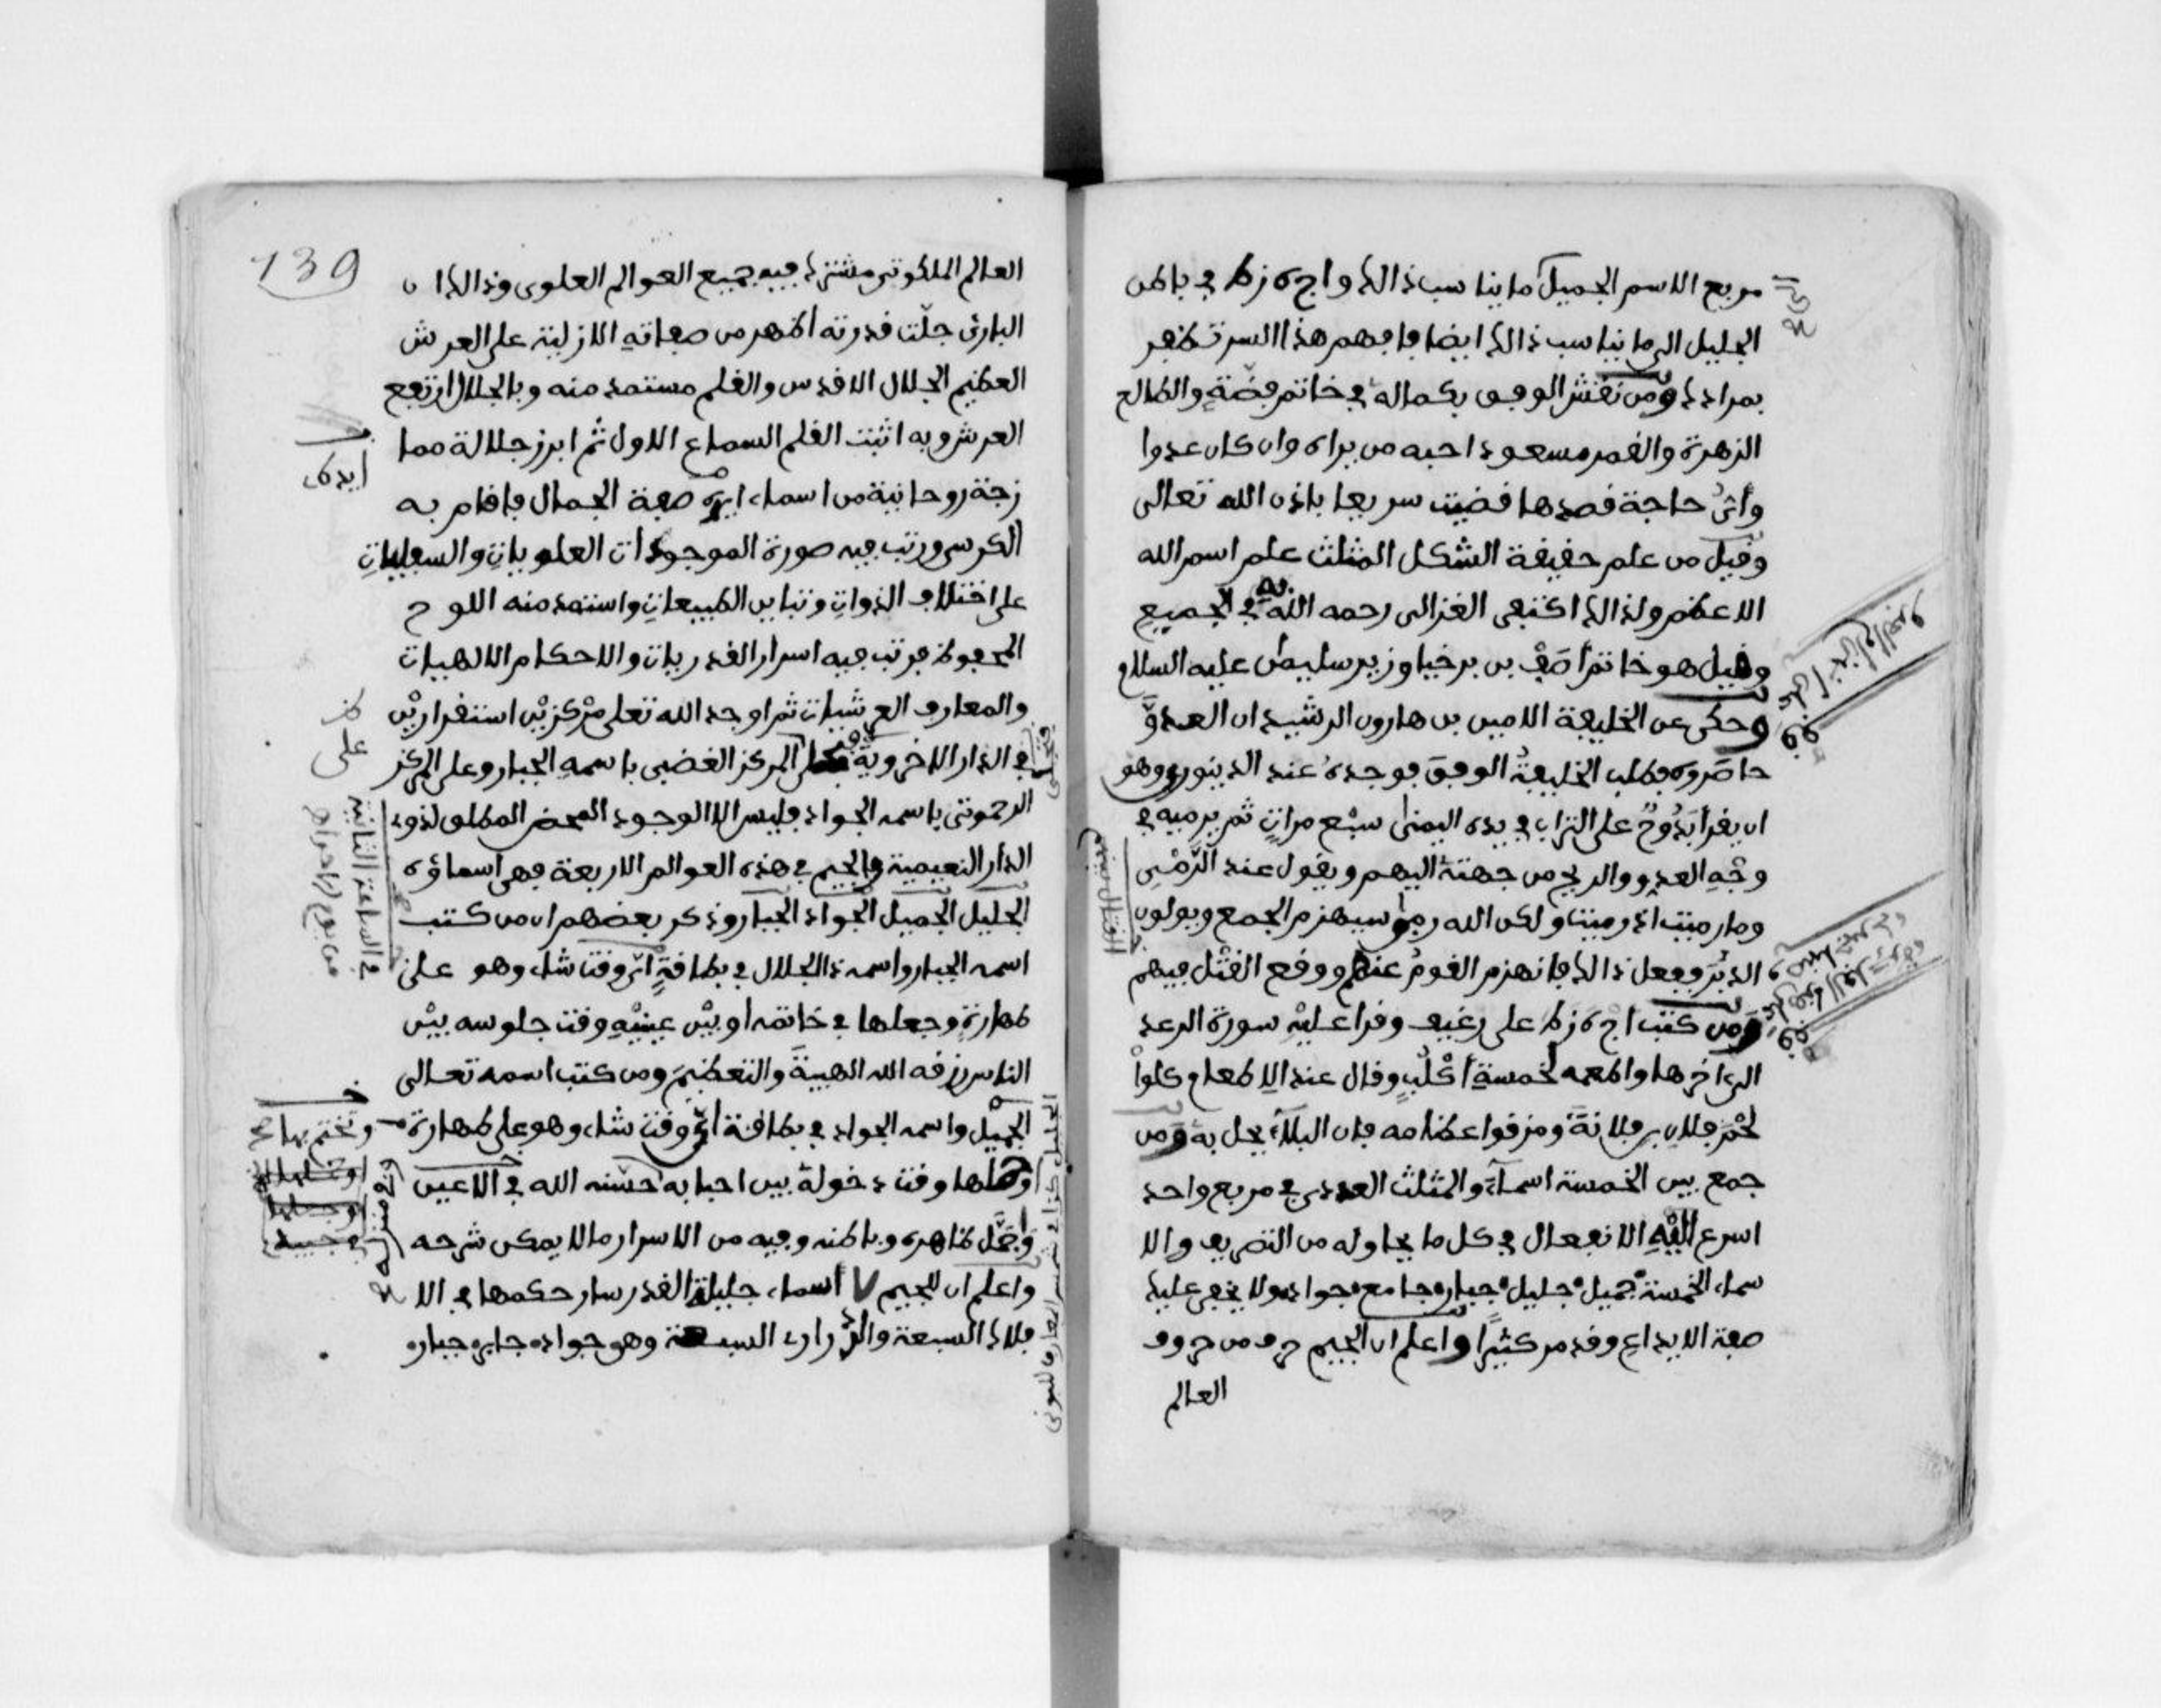 مربع الاسم الجميل ما يناسب ذالك واج ه زط في باطن
الجليل الى ما يناسب ذالك ايضا فافهم هذا السر تظفر
بمرادك ومن نقش الوفق بكماله في خاتم فضة والطالع
الزهرة والقمر مسعود احبه من يراه وان كان عدوا
وأيّ حاجة قصدها قضيت سريعا باذن الله تعالى
وقيل من علم حقيقة الشكل المثلث علم اسم الله
الاعظم ولذالك اكتفى الغزالى رحمه الله به في الجميع
وقيل هو خاتم آصف بن برخيا وزير سليمان عليه السلام
وحكى عن الخليفة الامين بن هارون الرشيد ان العدوّ
حاصروه فطلب الخليفة الوفق فوجده عند الدينورى وهو
ان يقرأ بدوح على التراب في يده اليمنى سبع مرات ثم يرميه في
وجه العدو والريح من جهته اليهم ويقول عند الرمي
وما رميت اذ رميت ولكن الله رمى سيهزم الجمع ويولون
الدبر ففعل ذالك فانهزم القوم عنهم ووقع القتل فيهم
ومن كتب اج ه زط على رغيف وقرا عليه سورة الرعد
الى اخرها واطعمه لخمسة اكلب وقال عند الاطعام كلوا
لحم فلان بن فلانة ومزقوا عظامه فان البلاء يحل به ومن
جمع بين الخمسة اسماء والمثلث العددى في مربع واحد
اسرع اليه الانفعال في كل ما يحاوله من التصريف والا
سماء الخمسة جميل جليل جبار جامع جواد ولا يخفى عليك
صفة الايداع وقد مر كثيرا واعلم ان الجيم حرف من حروف
العالم
139
العالم الملكوتى مشترك فيه جميع العوالم العلوى وذالك ان
البارئ جلّت قدرته اظهر من صفاته الازلية على العرش
العظيم الجلال الاقدس والقلم مستمد منه وبالجلال ارتفع
العرش وبه اثبت القلم السماع الاول ثم ابرز جلالة مما
زجة روحانية من اسماء صفة الجمال فاقام به
الكرسى ورتب فيه صورة الموجودات العلويات والسفليات
على اختلاف الذوات وتباين الطبيعات واستمد منه اللوح
المحفوظ فرتب فيه اسرار القدريات والاحكام الالهيات
والمعارف العرشيات ثم اوجد الله تعلى مركزين استقراريين
في الدار الاخروية المركز الغضبى باسمه الجبار وعلى المركز
الرحموتى باسمه الجواد فليس الا الوجود المحض المطلق لذوى
الدار النعيمية والجيم في هذه العوالم الاربعة فهى اسماؤه
الجليل الجميل الجواد الجبار وذكر بعضهم ان من كتب
اسمه الجبار واسمه ذا الجلال في بطاقة ايّ وقت شاء وهو على
طهارة وجعلها في خاتمه او بين عينيه وقت جلوسه بين
الناس رزقه الله الهيبة والتعظيم ومن كتب اسمه تعالى
الجميل واسمه الجواد في بطاقة ايّ وقت شاء وهو على طهارة
وحملها وقت دخوله بين احبابه حسّنه الله في الاعين
وجمّل ظاهره وباطنه وفيه من الاسرار ما لا يمكن شرحه
واعلم ان للجيم ٧ اسماء جليلة القدر سار حكمها في الا
فلاك السبعة والدرارى السبعة وهو جواد جابر جبار
ايدى
في الساعة الثانية
وتختم بها